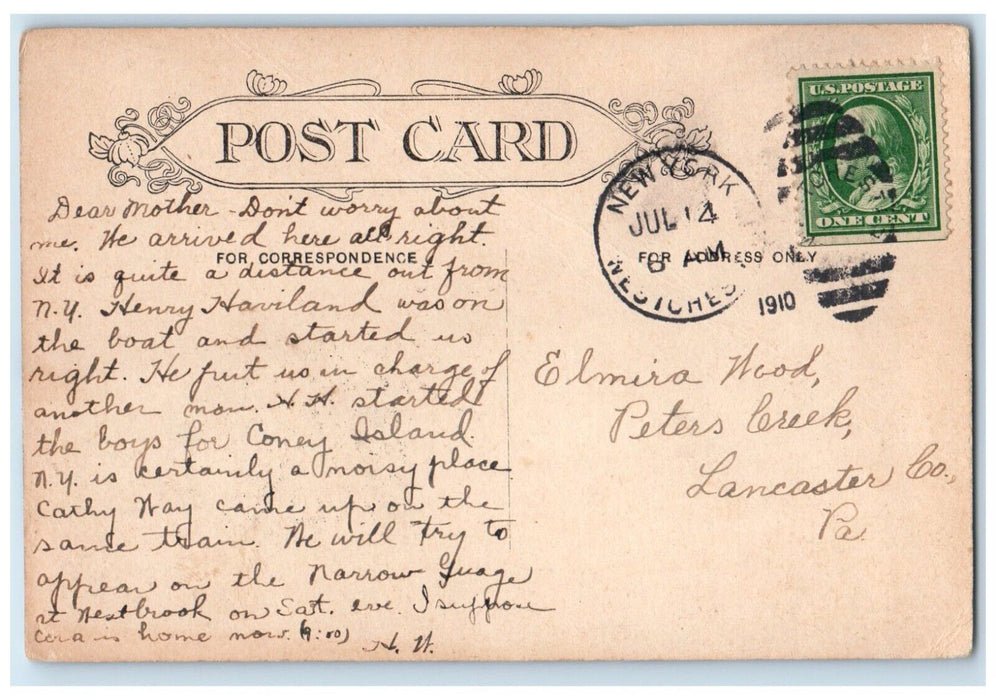 POST CARD
U.S. POSTAGE
ONE CENT
NEW YORK
JUL 14
6 AM
WESTCHES
1910
FOR CORRESPONDENCE
FOR ADDRESS ONLY
Dear Mother - Don't worry about
me. We arrived here all right.
It is quite a distance out from
N.Y. Henry Haviland was on
the boat and started us
right. He put us in charge of
another man. H.H. started
the boys for Coney Island.
N.Y. is certainly a noisy place
Cathy Way came up on the
same train. We will try to
appear on the Narrow Guage
at Westbrook on Sat. eve. I suppose
Cora is home now. (9:00)
H. W.
Elmira Wood,
Peters Creek,
Lancaster Co.,
Pa.